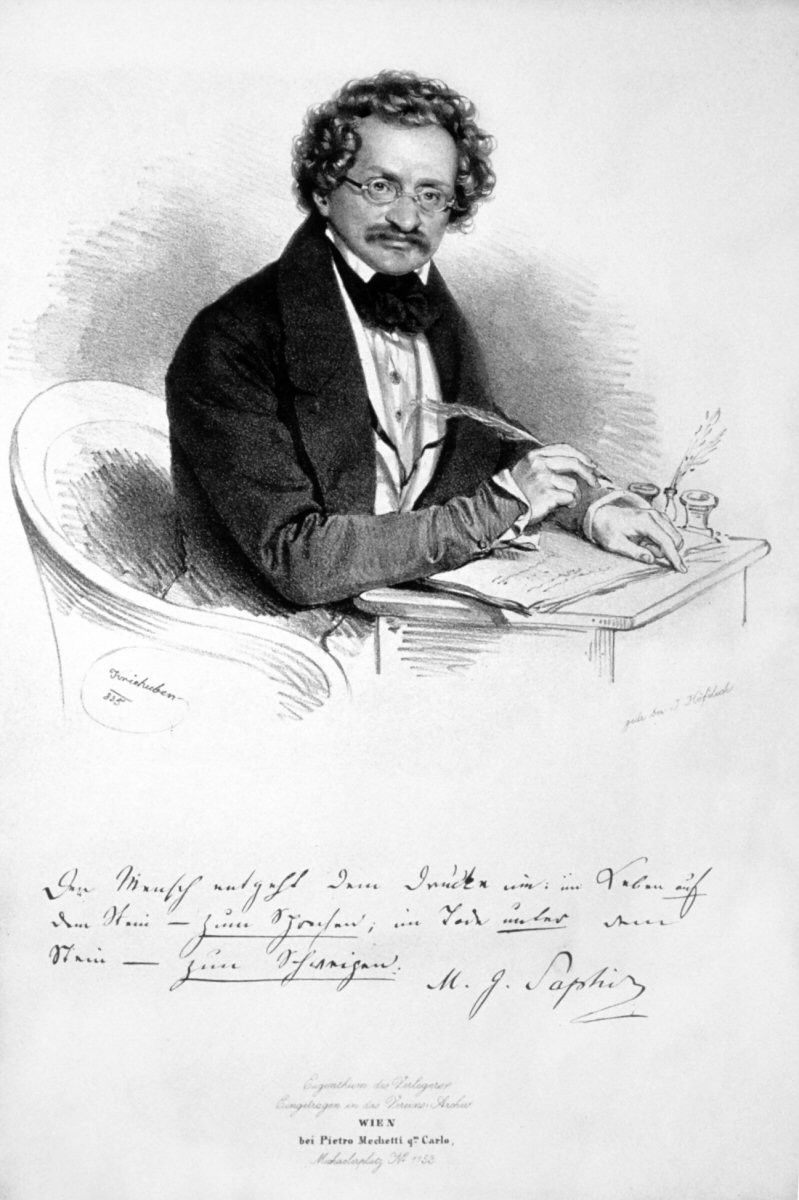 Kriehuber
835
gedr. bei J. Höfelich
Der Mensch entgeht dem Drucke nie: im Leben auf
dem Stein – zum Sprechen; im Tode unter dem
Stein – zum Schweigen.
M. G. Saphir
Eigenthum des Verlegers
Eingetragen in das Vereins-Archiv
WIEN
bei Pietro Mechetti qm Carlo,
Michaelerplatz No 1153